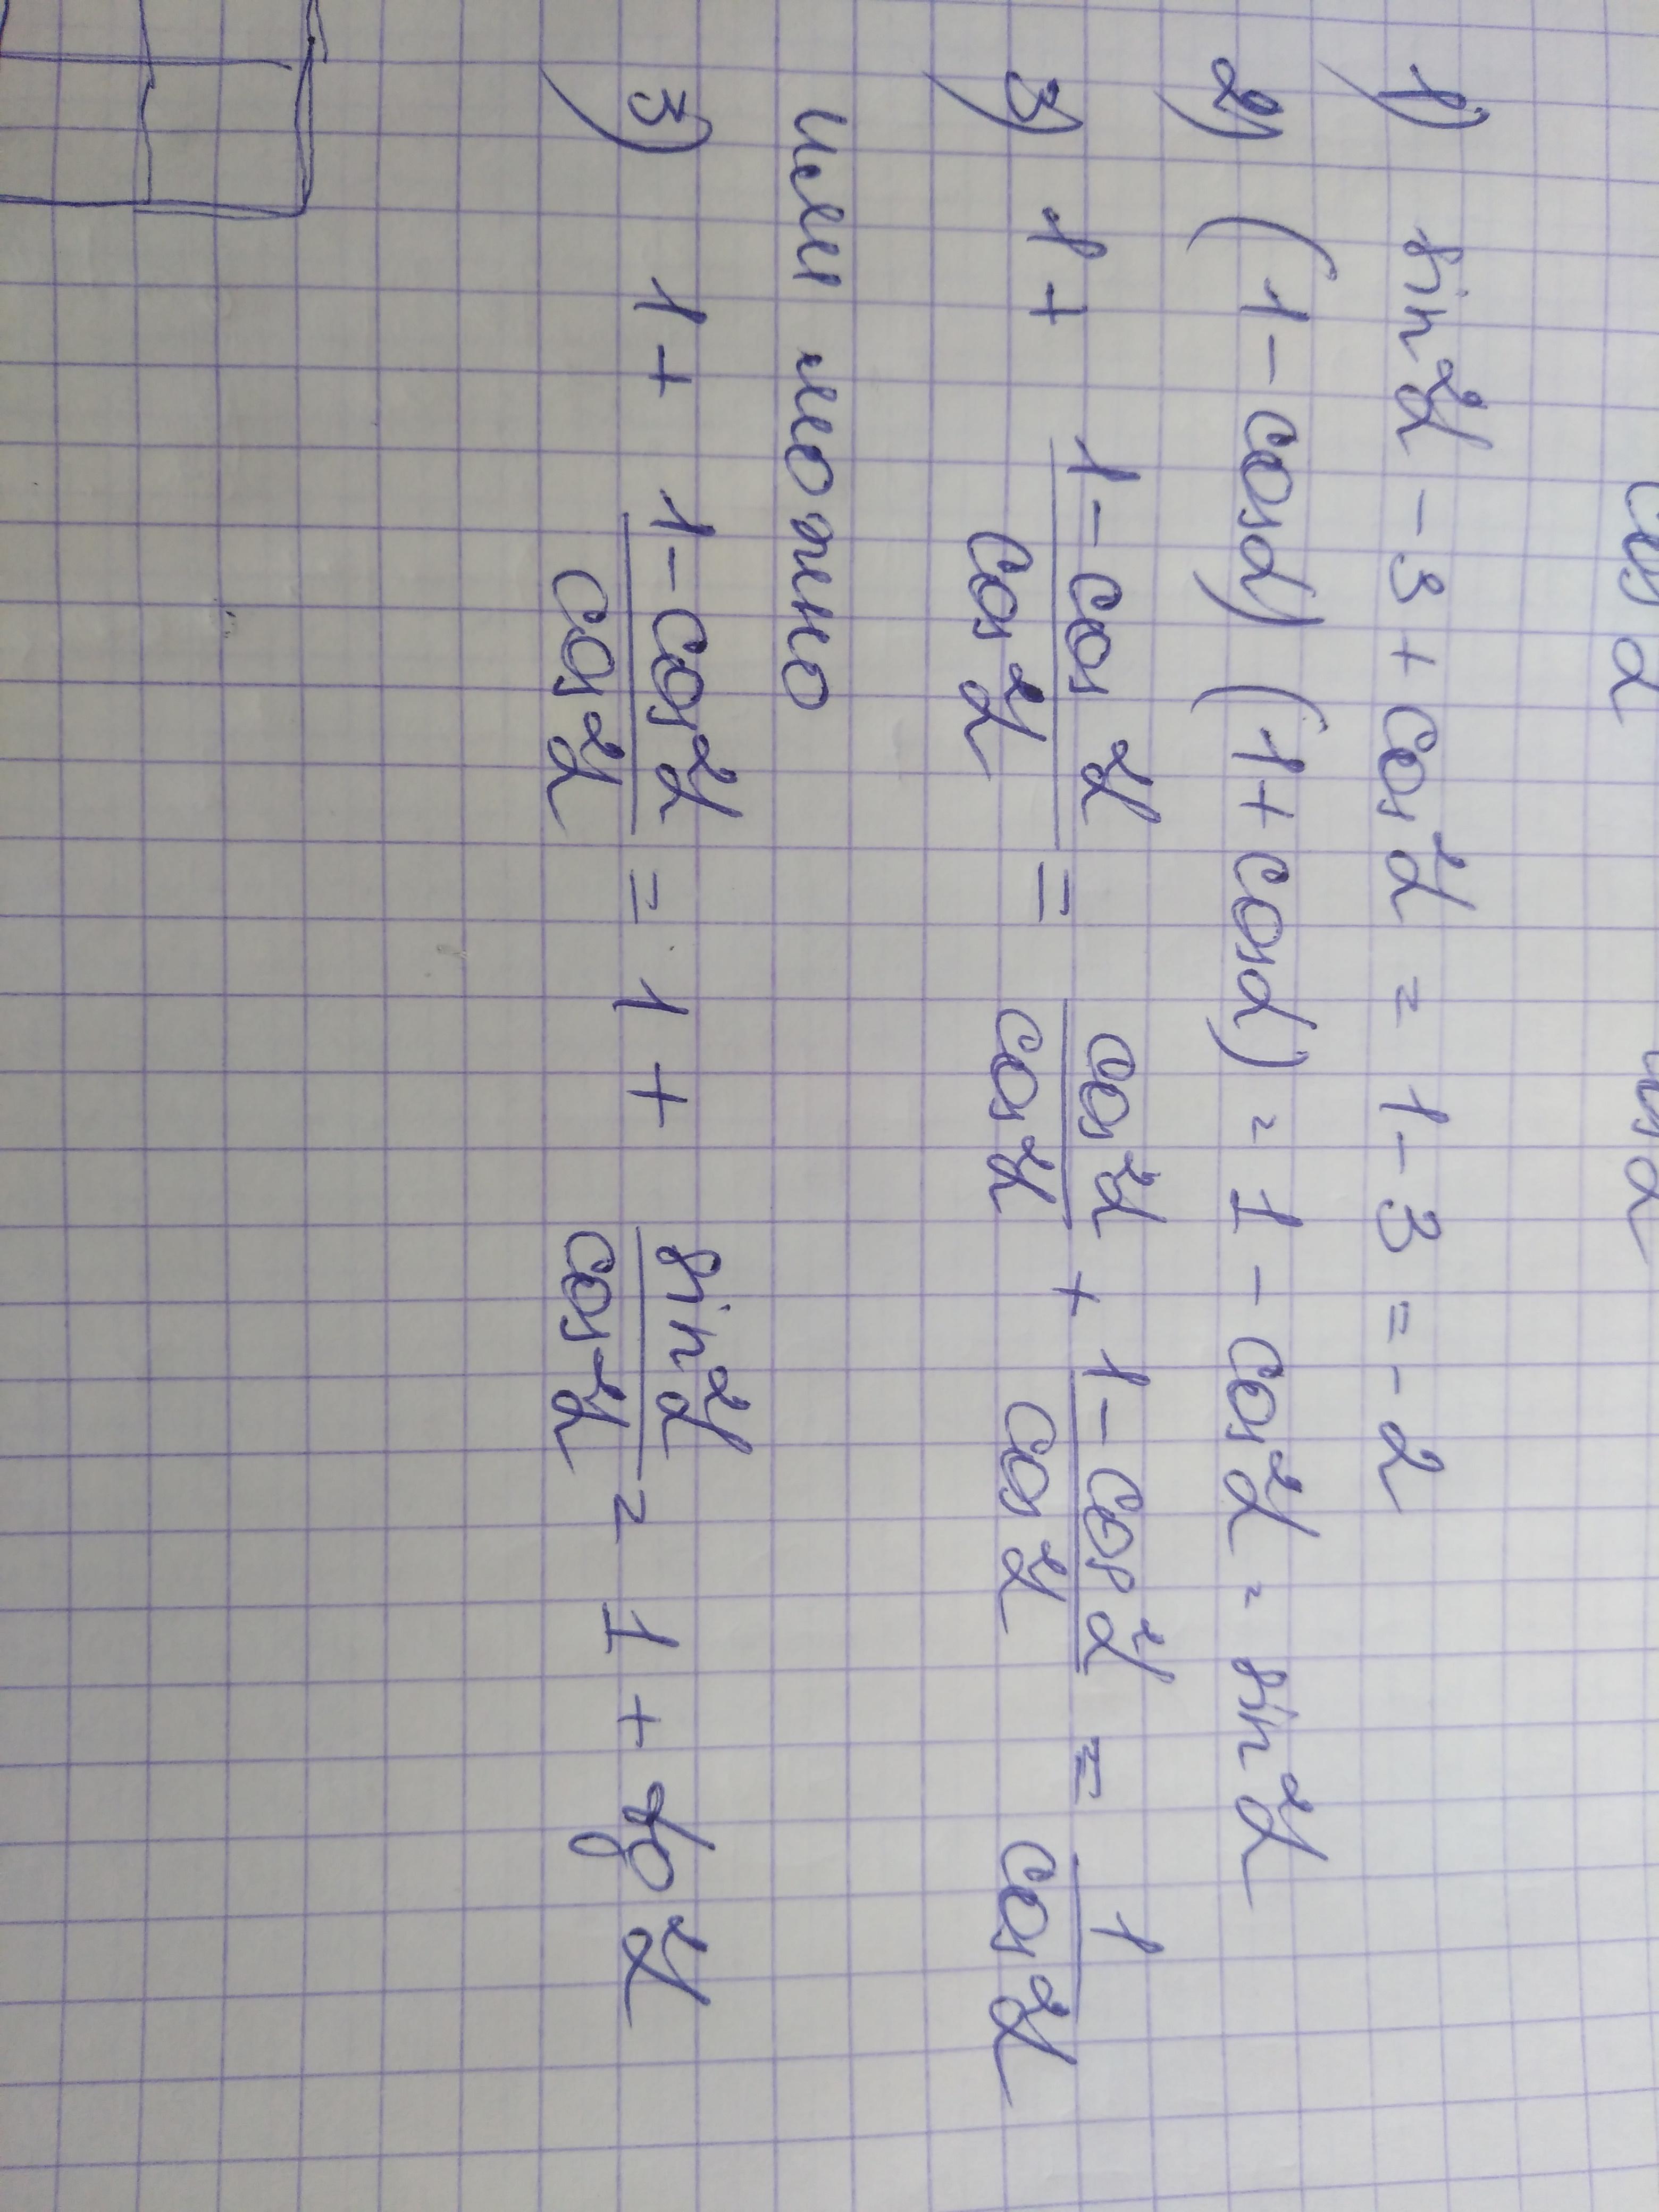 cos α
1) sin²α - 3 + cos²α = 1 - 3 = -2
2) (1 - cosα) (1 + cosα) = 1 - cos²α = sin²α
3) 1 + (1 - cos²α)/(cos²α) = (cos²α)/(cos²α) + (1 - cos²α)/(cos²α) = 1/(cos²α)
или можно
3) 1 + (1 - cos²α)/(cos²α) = 1 + (sin²α)/(cos²α) = 1 + tg²α